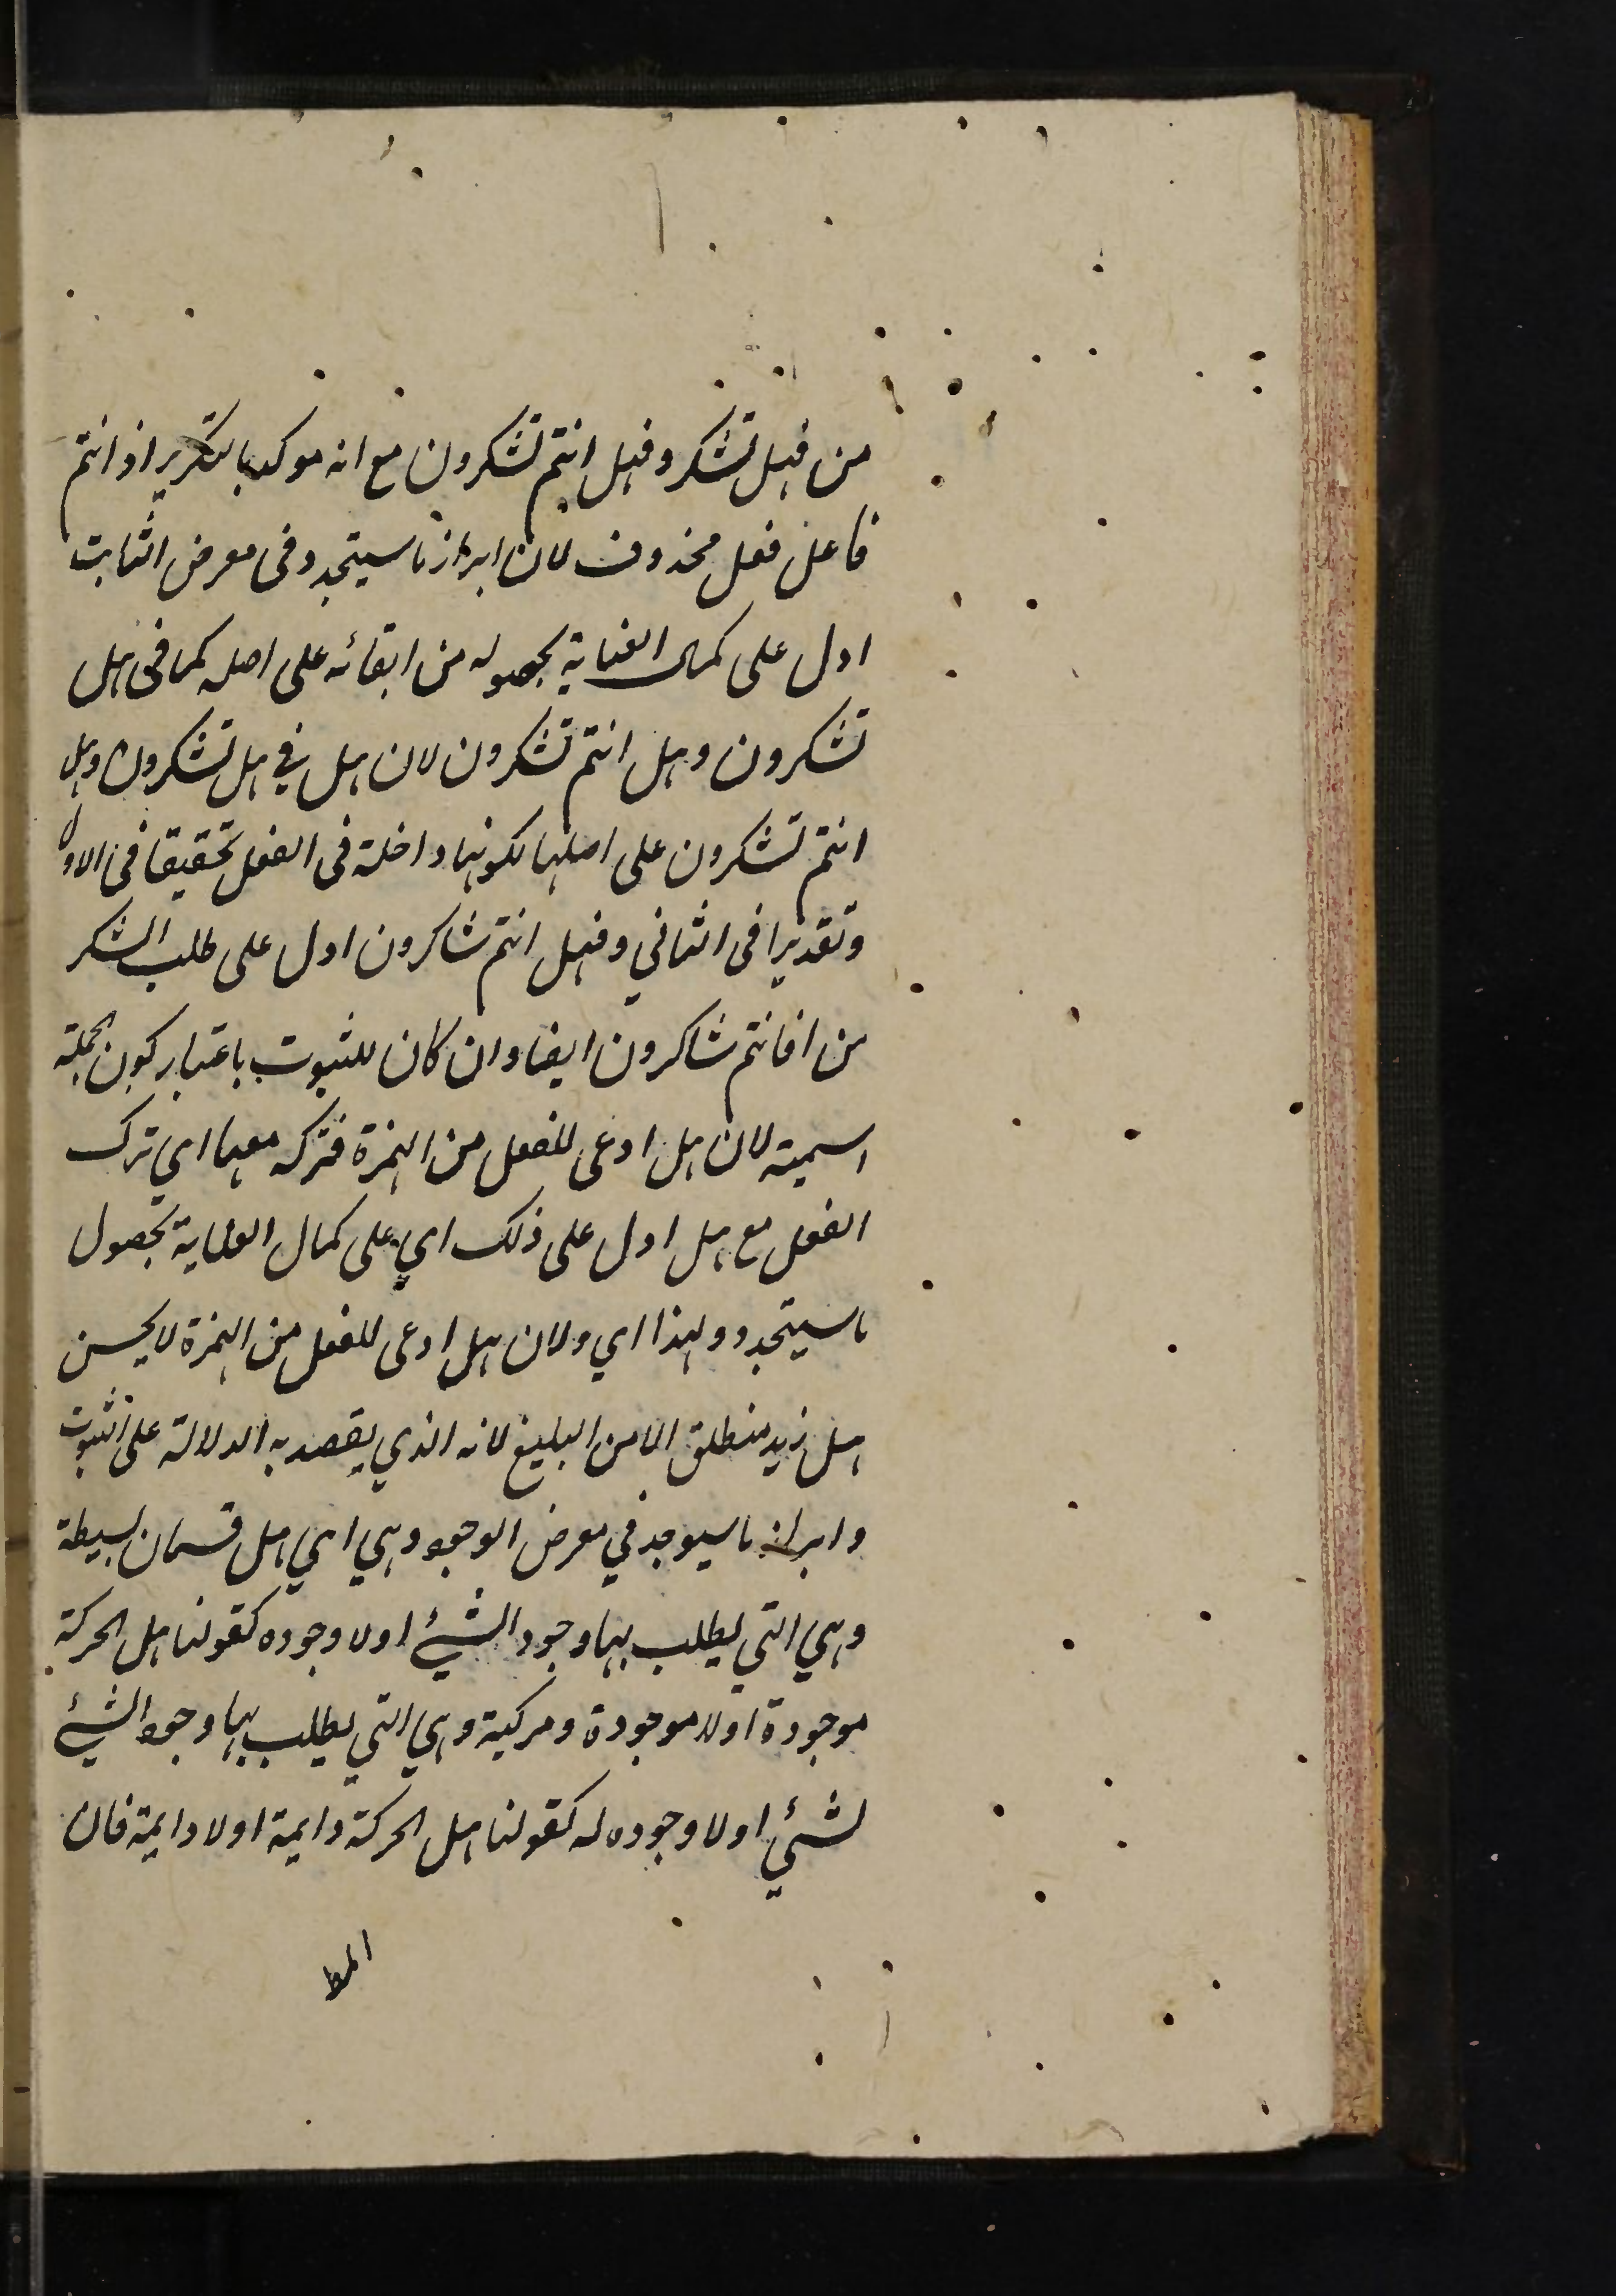 من فهل تشكر وفهل انتم تشكرون مع انه موكد بالتكرير اذ انتم
فاعل فعل محذوف لان ابراز ما سيتجدد فى معرض الثابت
ادل على كمال العناية بحصوله من ابقائه على اصله كما فى هل
تشكرون وهل انتم تشكرون لان هل في هل تشكرون وهل
انتم تشكرون على اصلها لكونها داخلة فى الفعل تحقيقا فى الاول
وتقديرا فى الثاني وفهل انتم شاكرون ادل على طلب الشكر
من افانتم شاكرون ايضا وان كان للثبوت باعتبار كون الجملة
اسمية لان هل ادعى للفعل من الهمزة فتركه معها اي ترك
الفعل مع هل ادل على ذلك اي على كمال العناية بحصول
ما سيتجدد ولهذا اي ولان هل ادعى للفعل من الهمزة لا يحسن
هل زيد منطلق الا من البليغ لانه الذي يقصد به الدلالة على الثبوت
وابراز ما سيوجد في معرض الوجود وهي اي هل قسمان بسيطة
وهي التي يطلب بها وجود الشيئ او لا وجوده كقولنا هل الحركة
موجودة اولا موجودة ومركبة وهي التي يطلب بها وجود الشيئ
لشيئ او لا وجوده له كقولنا هل الحركة دايمة اولا دايمة فان
المط